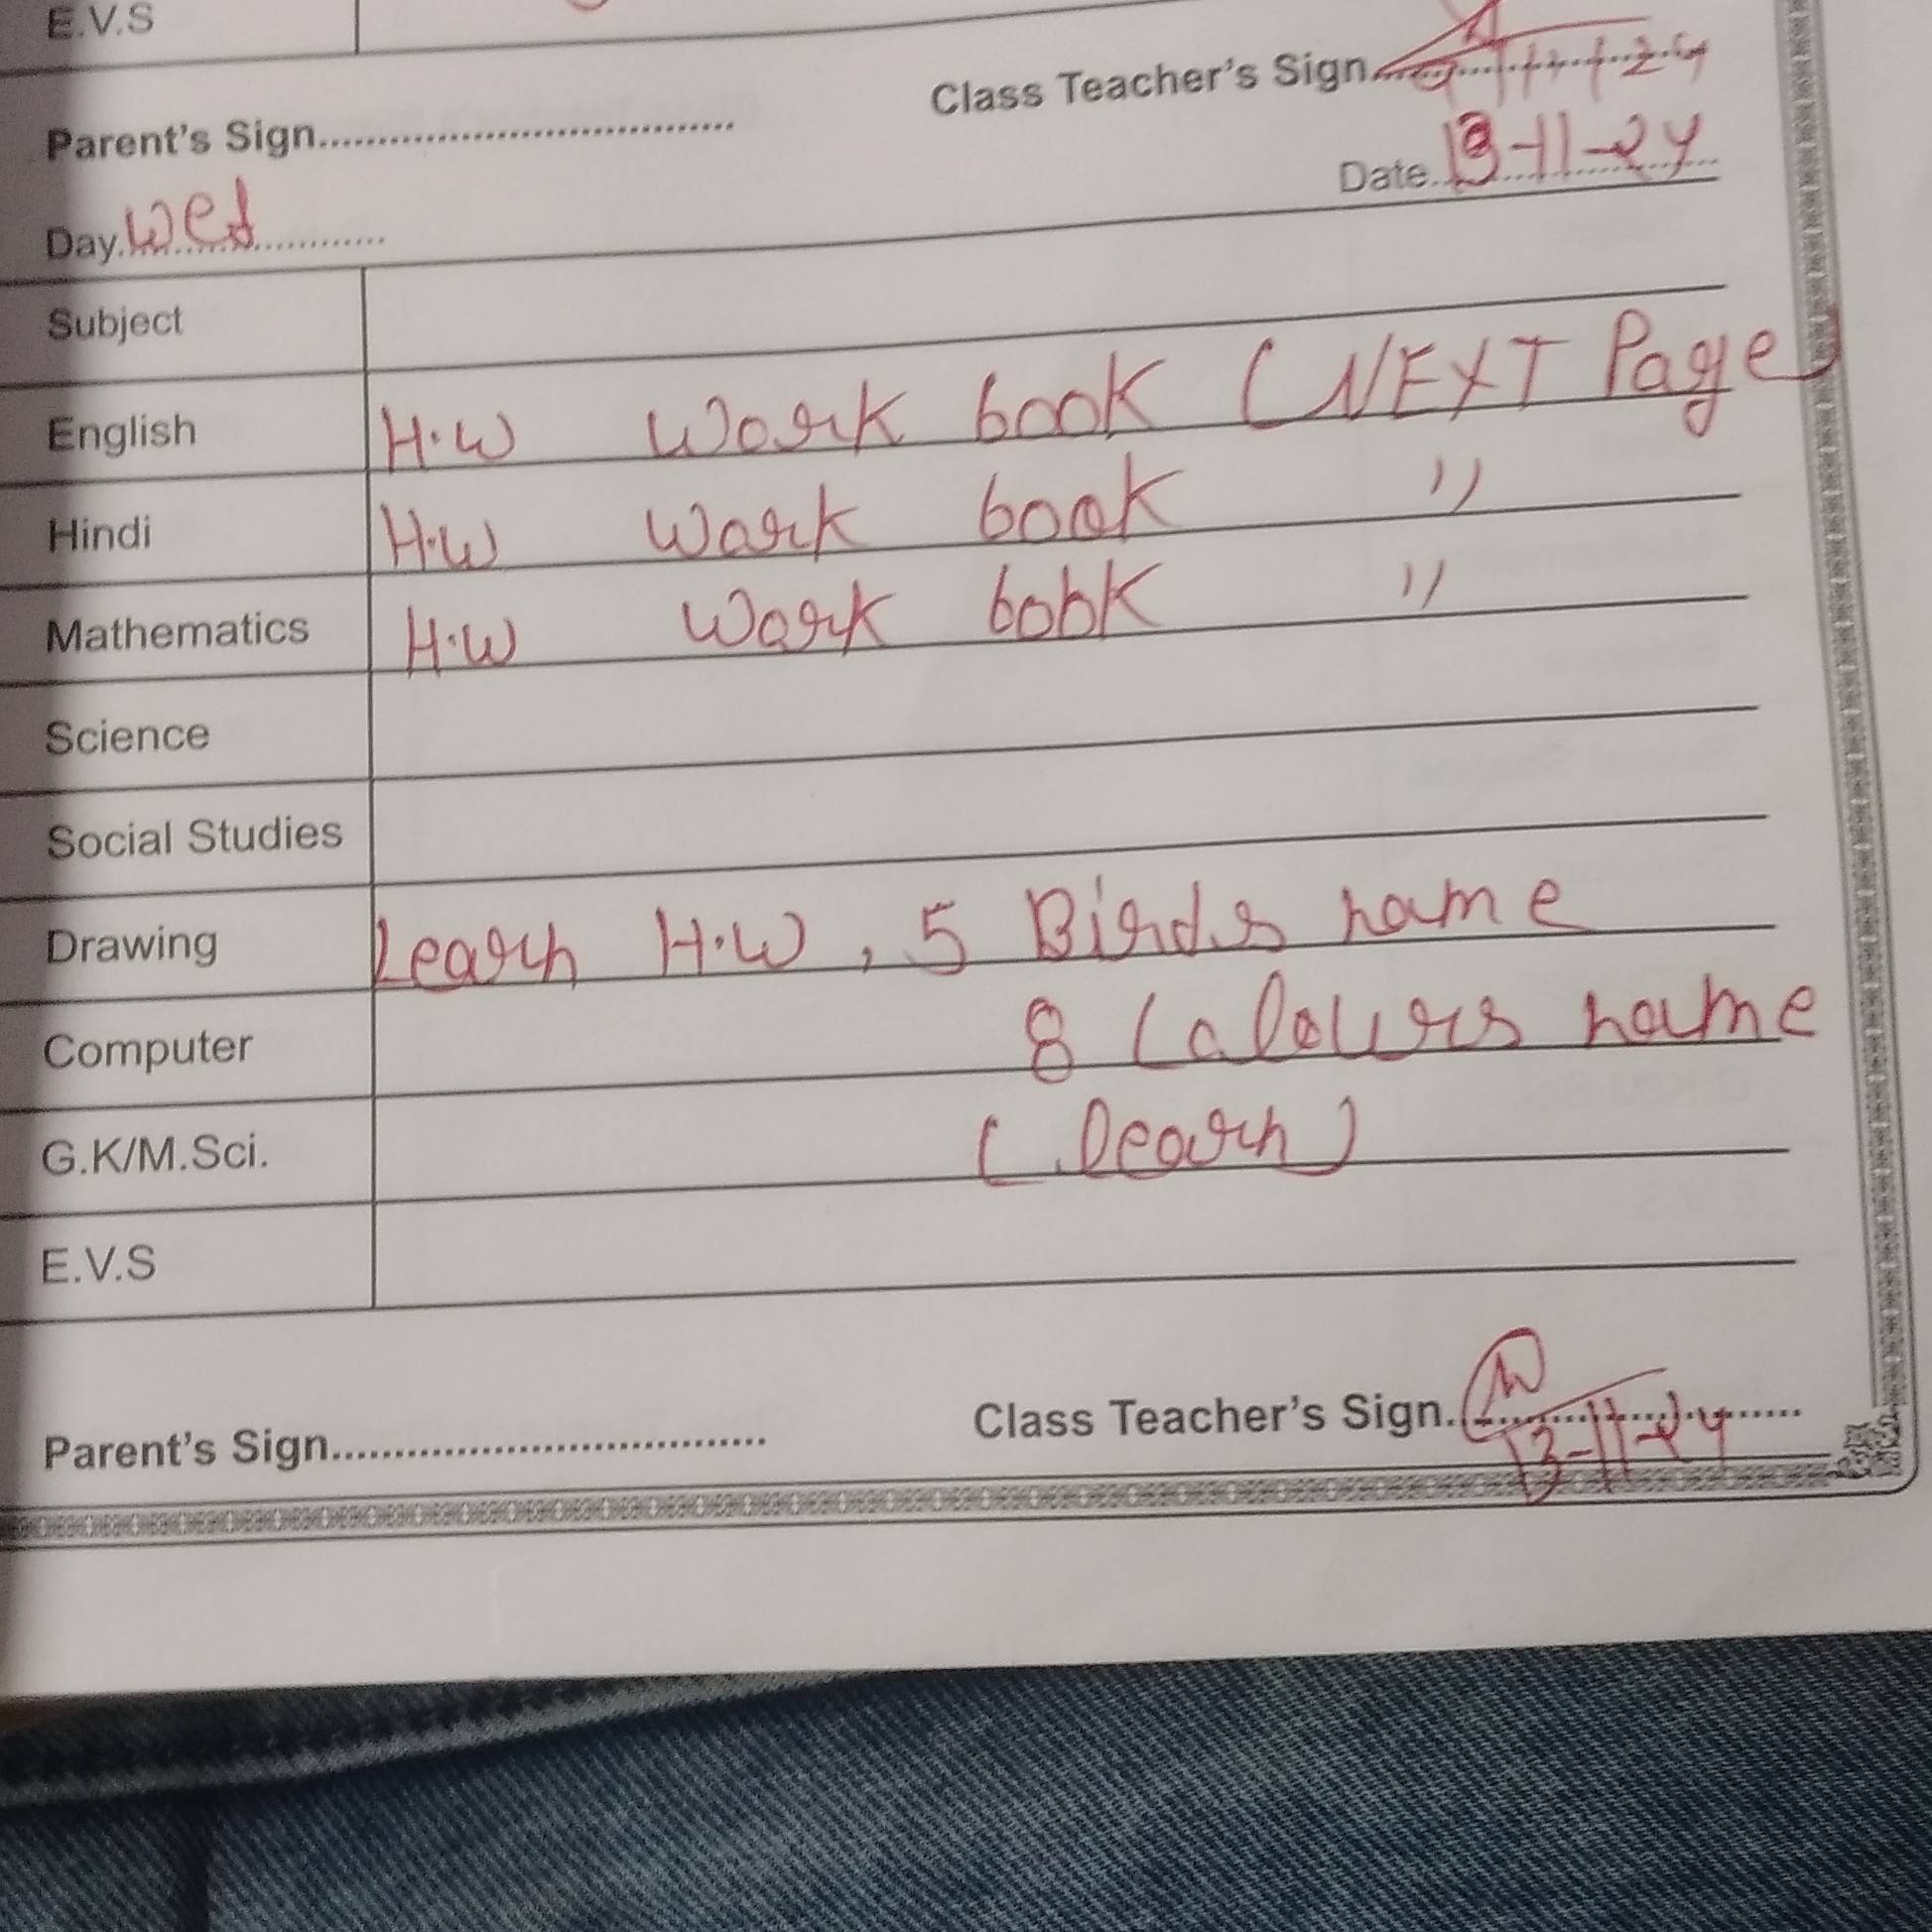 E.V.S
Class Teacher's Sign.
Parent's Sign..................................
Date. 13-11-24
Day. Wed
Subject
English H.W Work book (NEXT Page)
Hindi H.W Work book "
Mathematics H.W Work book "
Science
Social Studies
Drawing Learn H.W, 5 Birds name
Computer 8 Colours name
G.K/M.Sci. (Learn)
E.V.S
Class Teacher's Sign. 13-11-24
Parent's Sign..................................